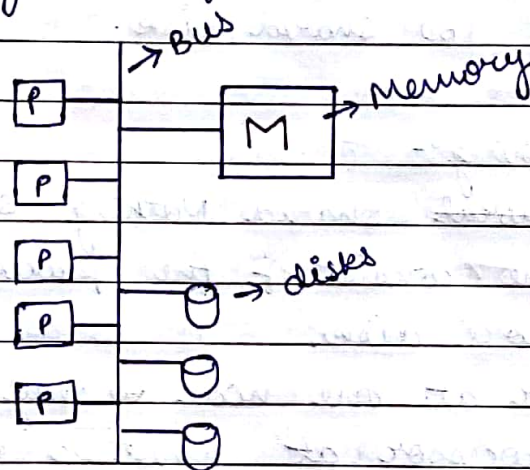 Bus
P
M
Memory
P
P
disks
P
P